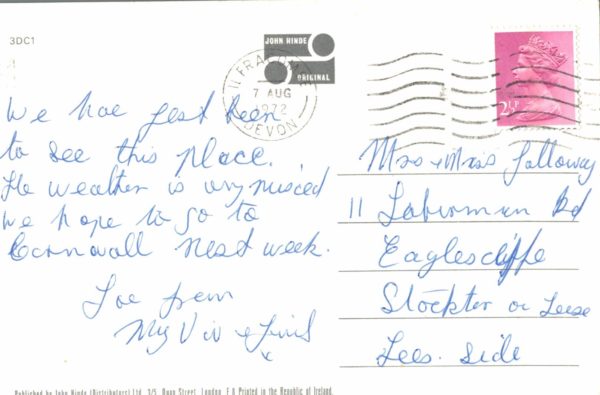 3DC1
JOHN HINDE
ORIGINAL
ILFRACOMBE
7 AUG
1972
DEVON
2½P
We hoe jest been
to see this place.
He weather is very mixed
We hope to go to
Cornwall nest week.
Loe from
Viv
Mrs + Miss Galloway
11 Laburnum Rd
Eaglescliffe
Stockton or Leese
Lees. Side
Published by John Hinde (Distributors) Ltd. 3/5, Dean Street, London, E 8 Printed in the Republic of Ireland.